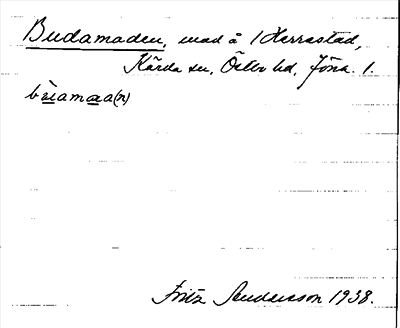 Budamaden, mad å 1 Herrestad,
Kärda sn, Östbo hd, Jönk. l.
bùamaa(n)
Fritz Andersson 1938.